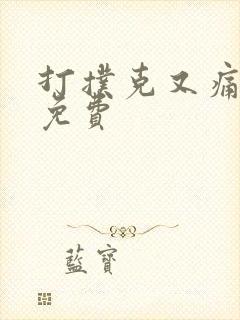 打撲克又痛
免費
藍寶